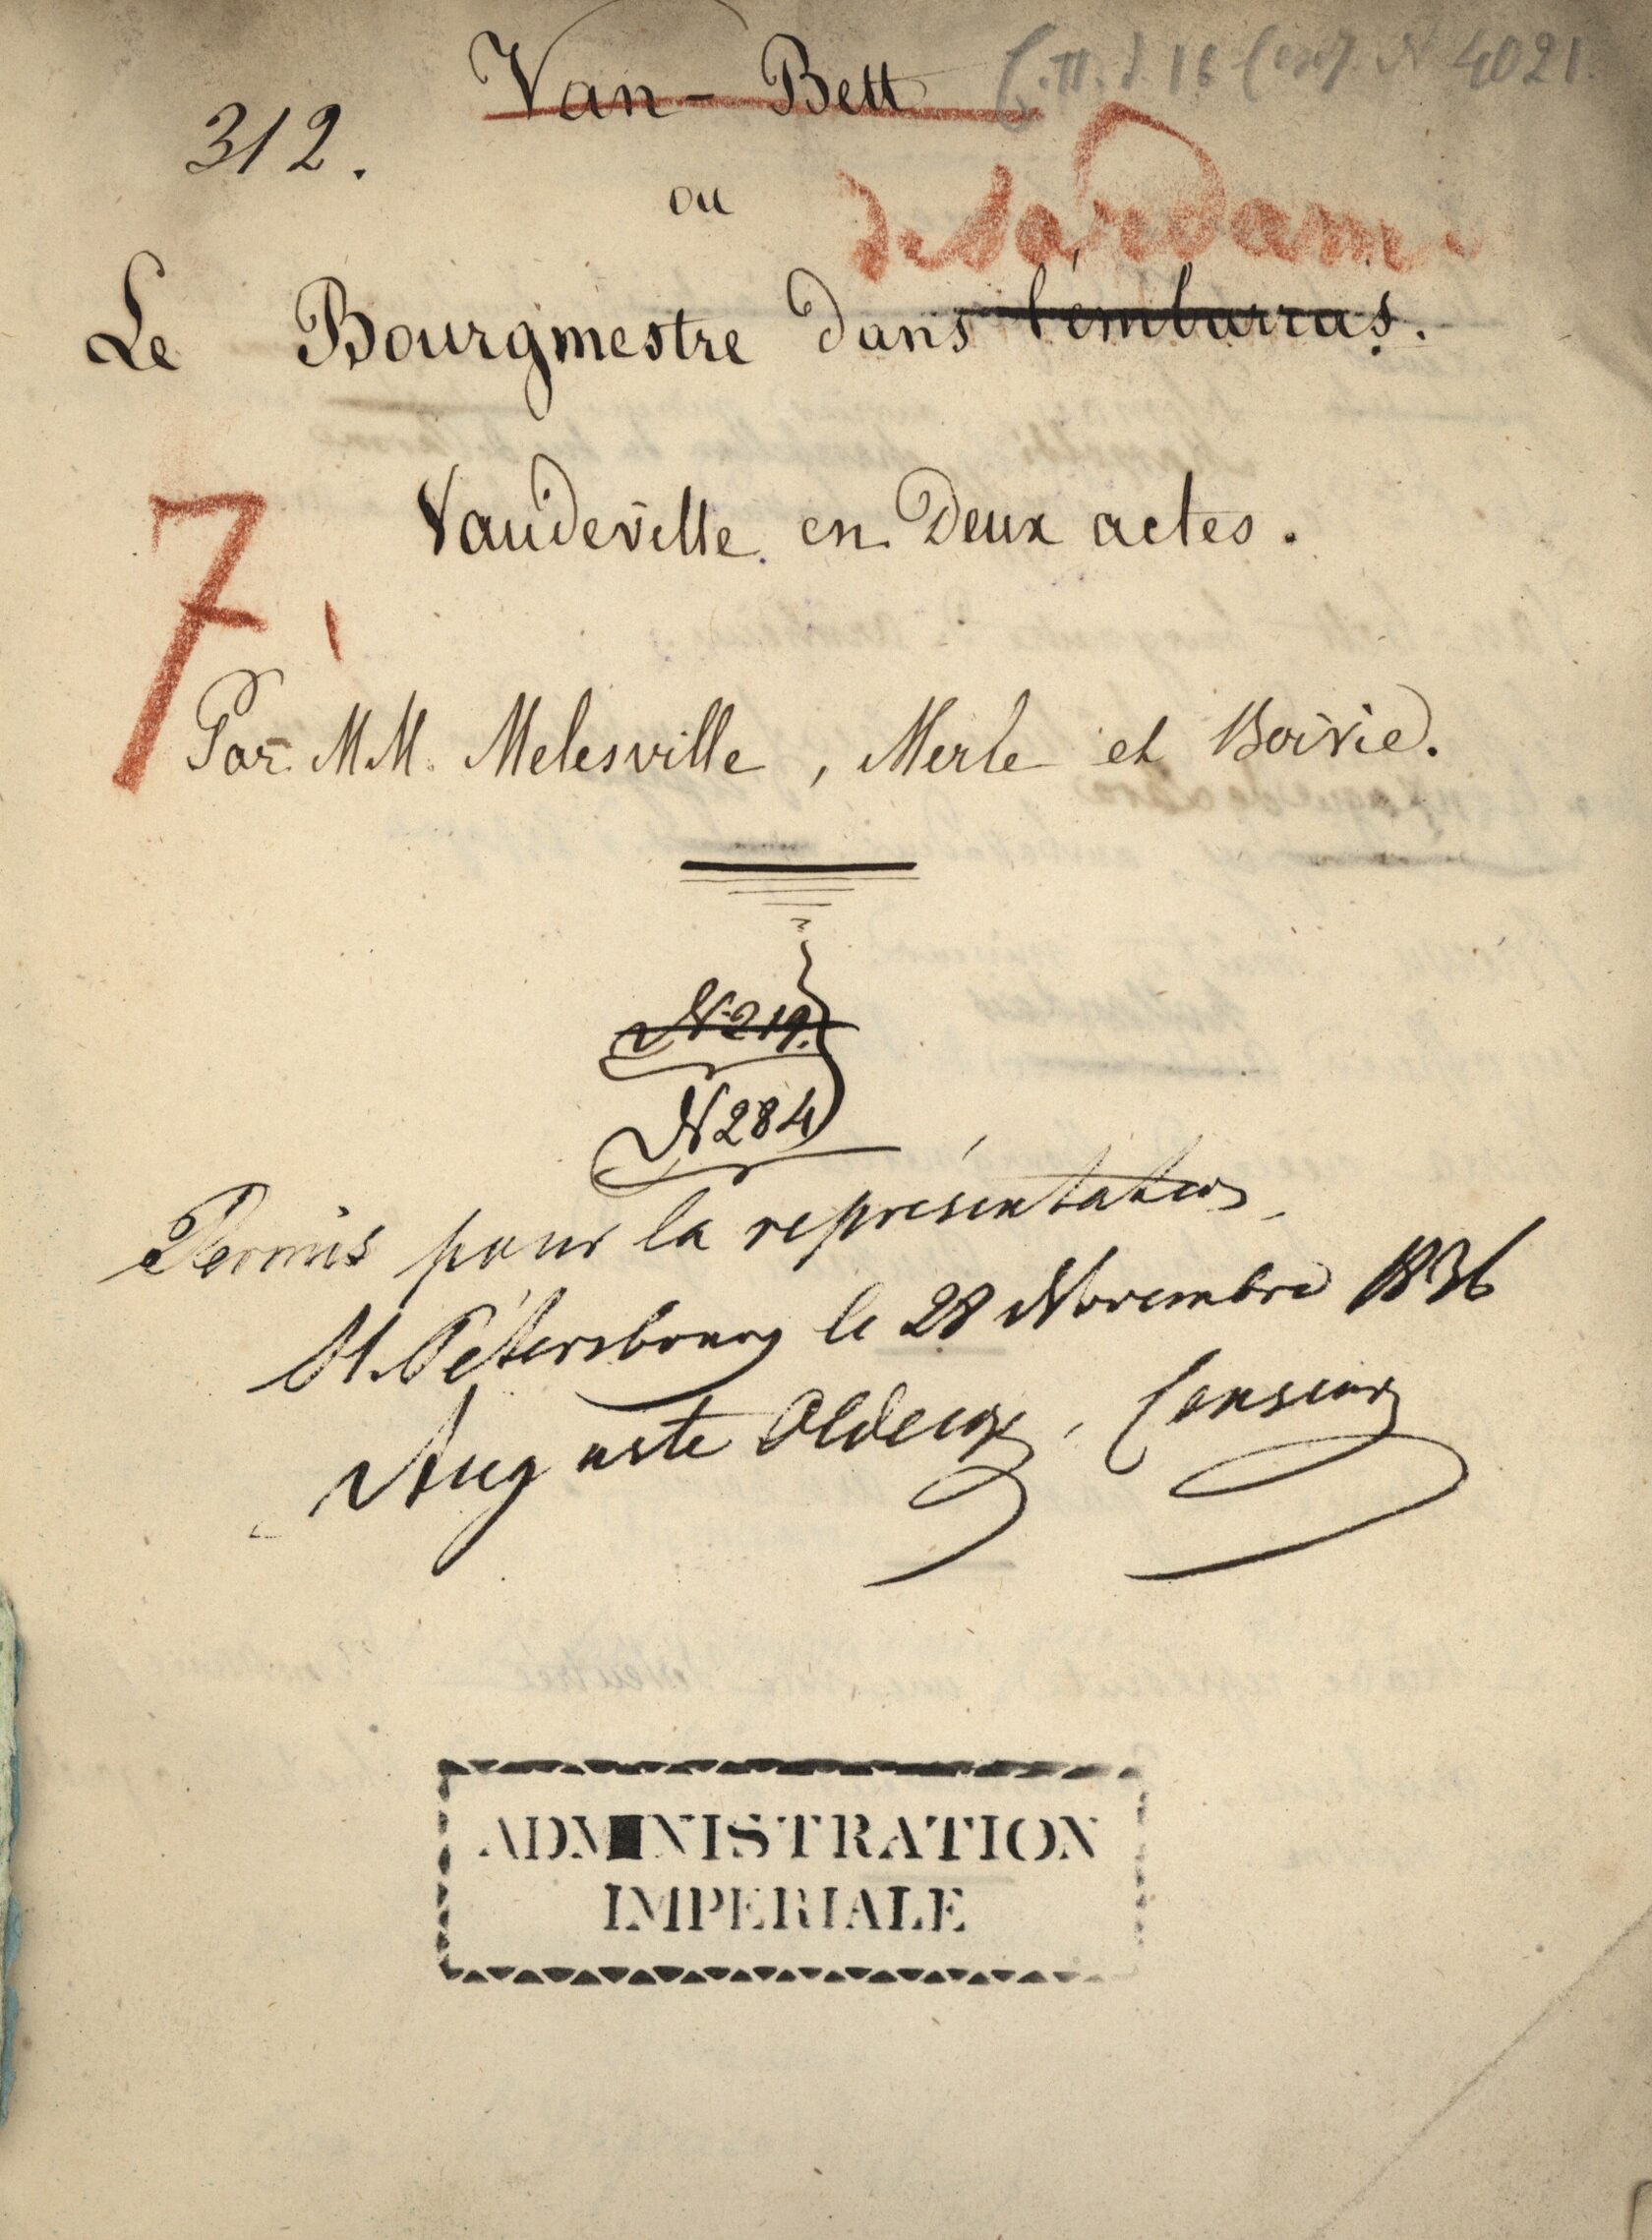 Van-Bett
4021.
312.
ou
de Sardam
Le Bourgmestre dans l'embarras.
Vaudeville en Deux actes.
7
Par MM. Melesville, Merle et Boirie.
N 219.
N 284
Permis pour la représentation,
St. Pétersbourg le 28 Novembre 1836
Auguste Oldecop, Censeur
ADMINISTRATION
IMPERIALE